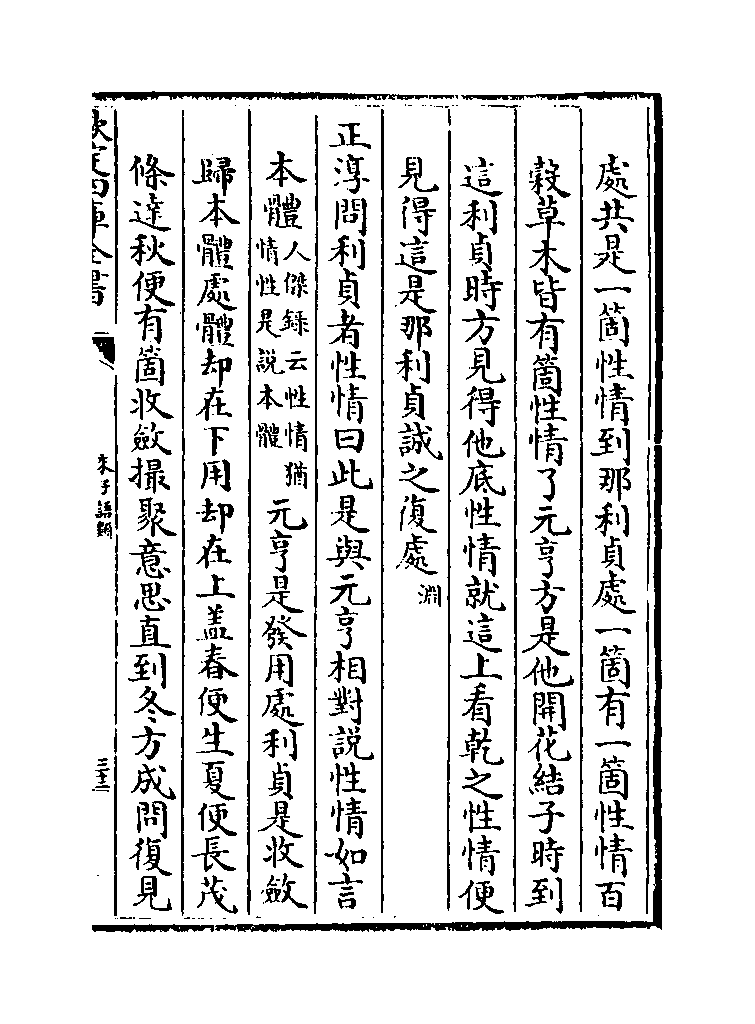 處共是一箇性情到那利貞處一箇有一箇性情百
穀草木皆有箇性情了元亨方是他開花結子時到
這利貞時方見得他底性情就這上看乾之性情便
見得這是那利貞誠之復處淵
正淳問利貞者性情曰此是與元亨相對說性情如言
本體人傑錄云性情猶情性是說本體元亨是發用處利貞是收斂
歸本體處體却在下用却在上盖春便生夏便長茂
條達秋便有箇收斂撮聚意思直到冬方成問復見
欽定四庫全書
朱子語類
三十三